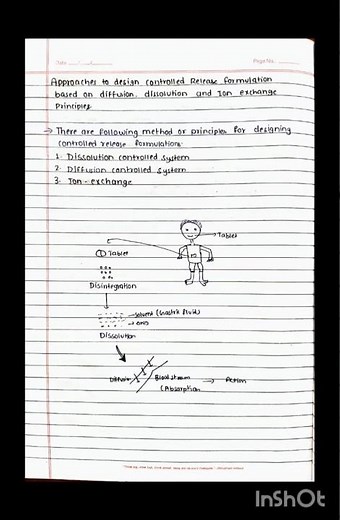 Date
Page No.
Approaches to design controlled Release formulation
based on diffusion, dissolution and Ion exchange
Principles
→ There are following method or principles for designing
controlled release formulation:
1. Dissolution controlled system
2. Diffusion controlled system
3. Ion-exchange
Tablet
① Tablet
Disintegration
solvent (Gastric fluid)
Dissolution
Diffusion
Blood stream → Action
(Absorption
InShOt